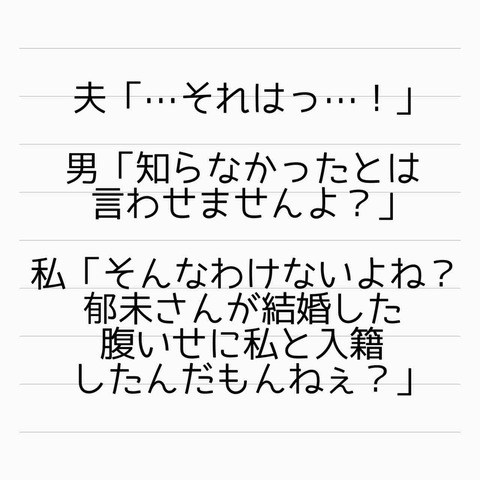 夫「…それはっ…！」
男「知らなかったとは
言わせませんよ？」
私「そんなわけないよね？
郁未さんが結婚した
腹いせに私と入籍
したんだもんねぇ？」